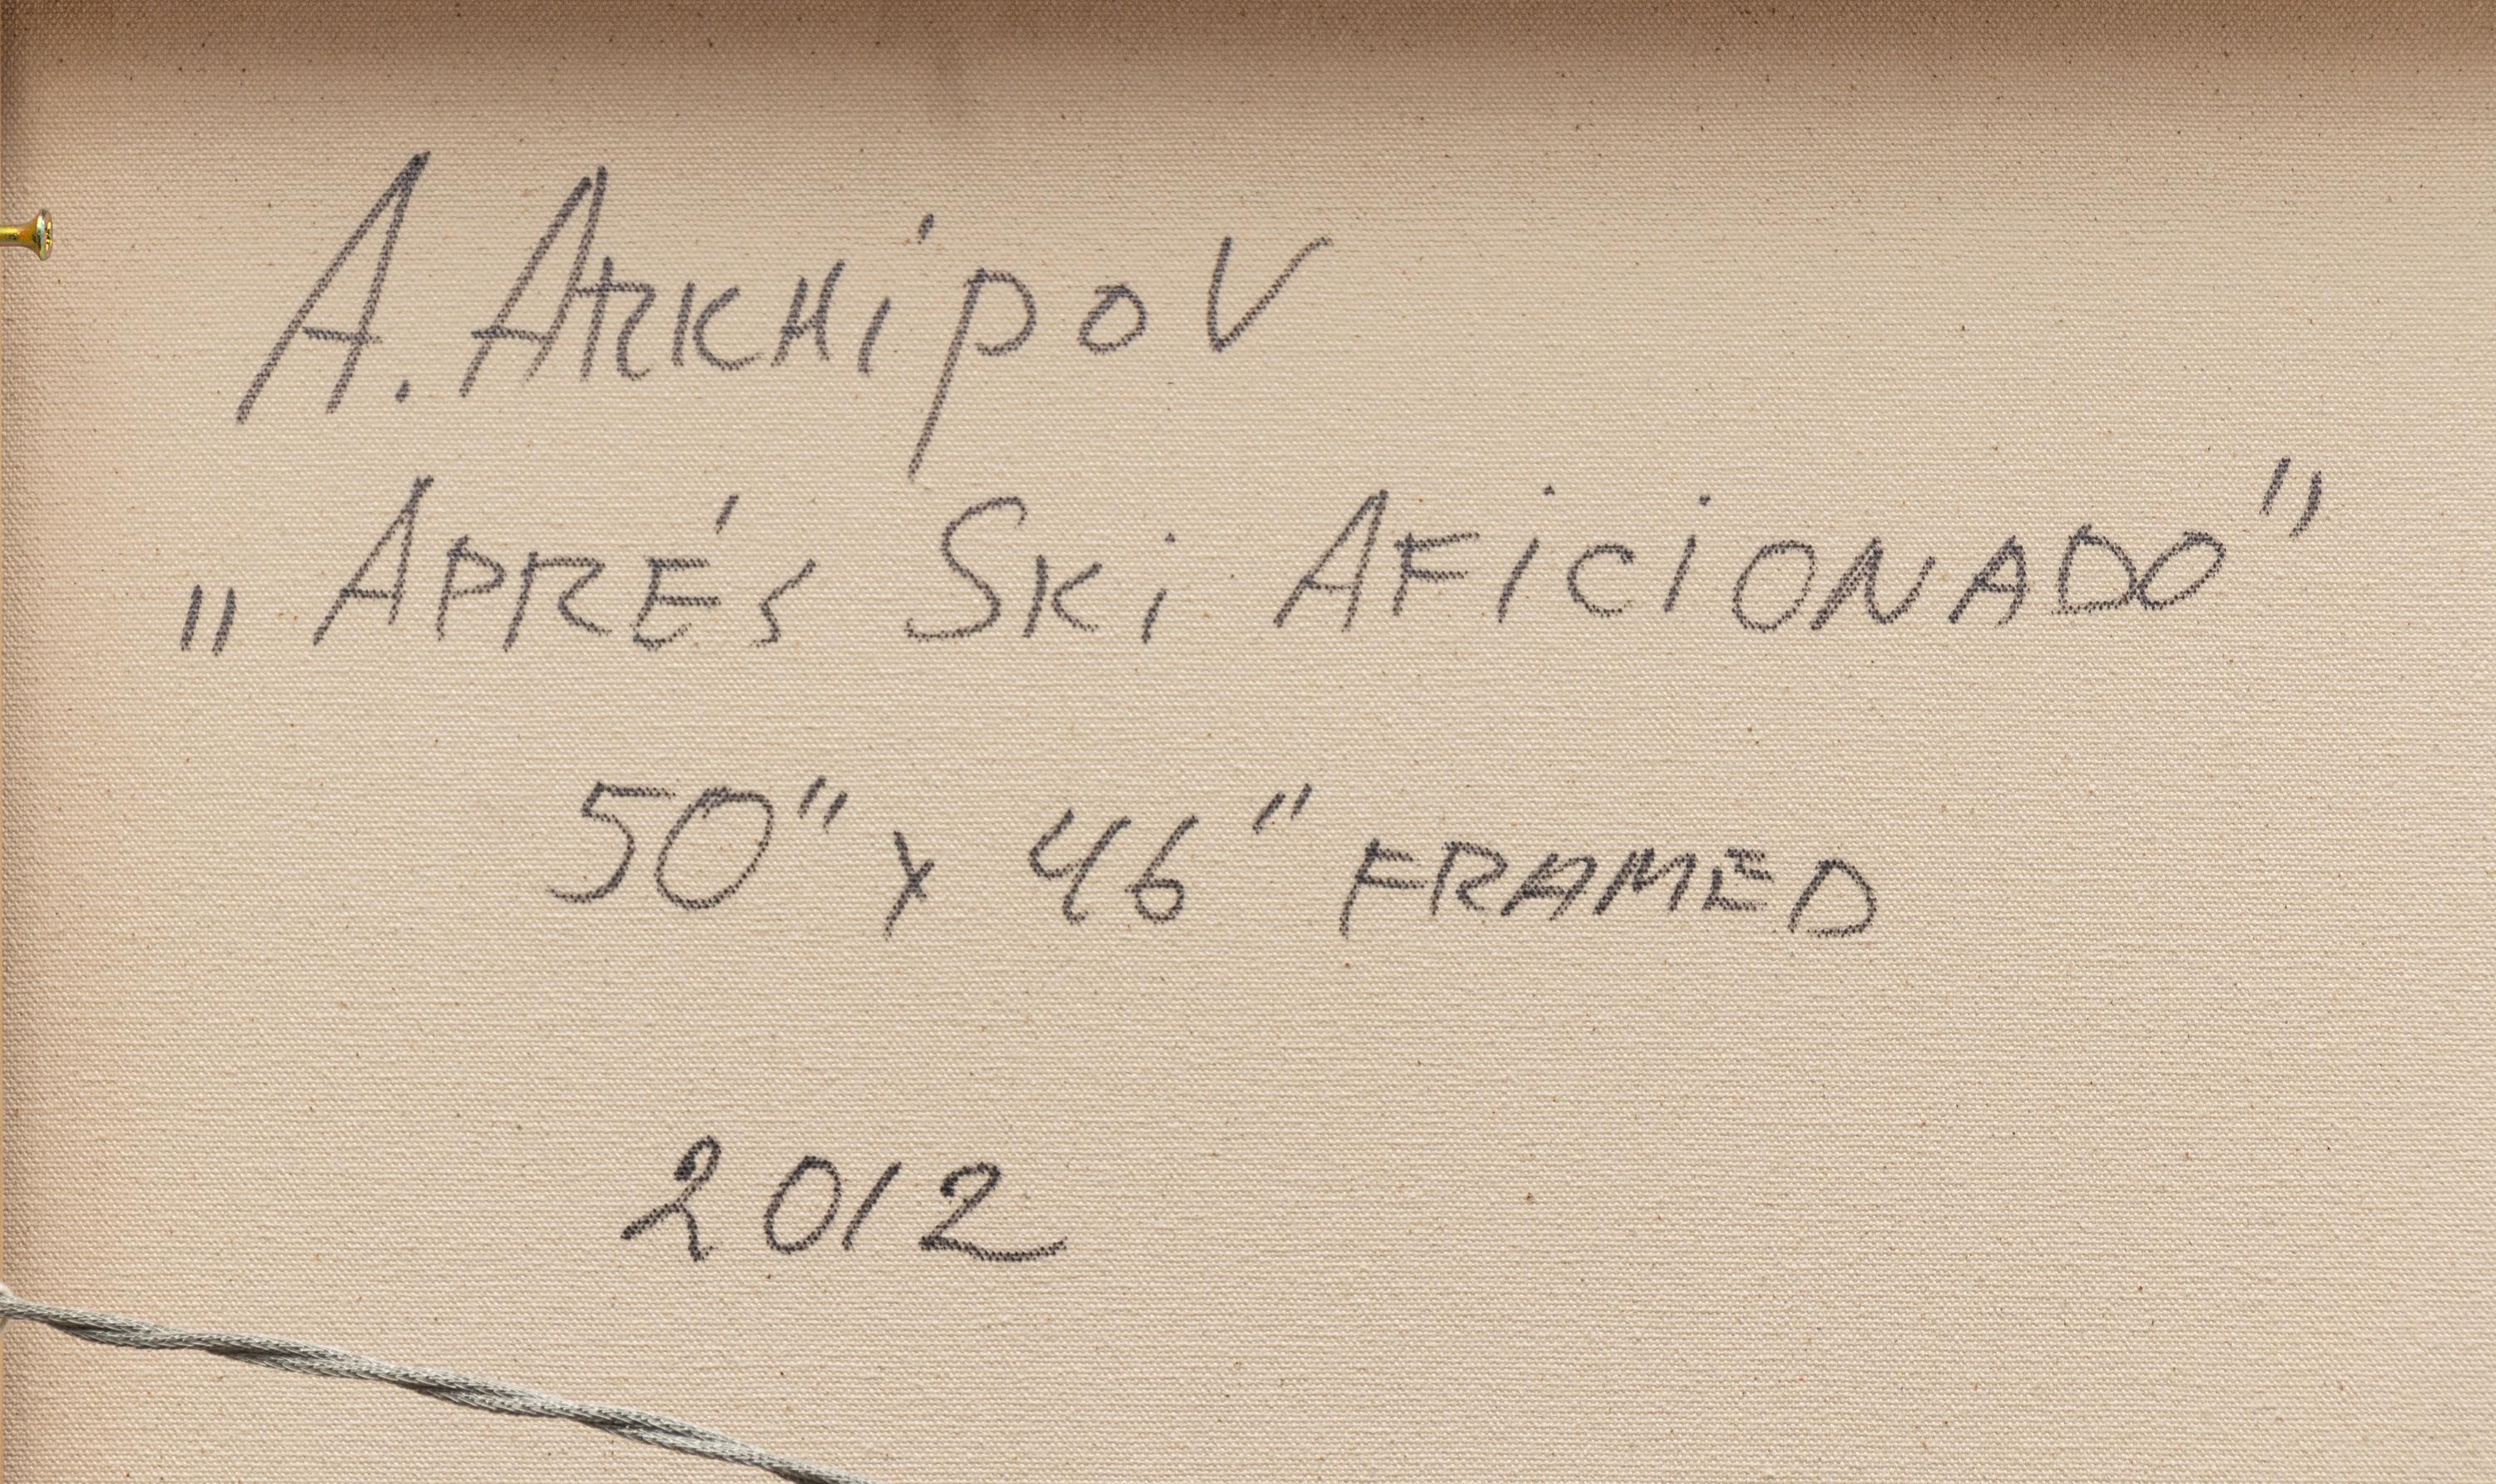 A. ARKHipoV
„ APRÉS SKi AFiCiONADO"
50" x 46" FRAMED
2012